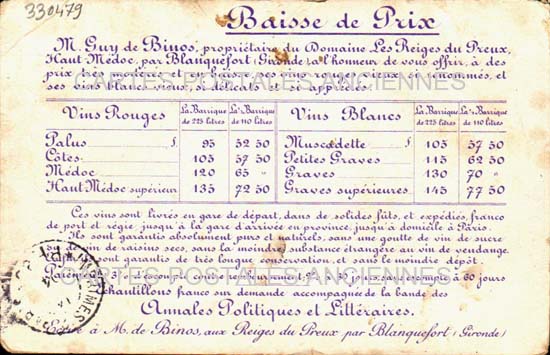 330479
Baisse de Prix
M. Guy de Binos, propriétaire du Domaine Les Reiges du Preux,
Haut Médoc, par Blanquefort (Gironde) a l'honneur de vous offrir, à des
prix très modérés et en baisse, ses vins rouges vieux si renommés, et
ses vins blancs vieux, si délicats et si appréciés.
CARTES POSTALES ANCIENNES
Vins Rouges La Barrique de 225 litres La ½ Barrique de 110 litres Vins Blancs La Barrique de 225 litres La ½ Barrique de 110 litres
Palus f. 95 52 50 Muscadette f. 105 57 50
Côtes 105 57 50 Petites Graves 115 62 50
Médoc 120 65 » Graves 130 70 »
Haut Médoc supérieur 135 72 50 Graves supérieures 145 77 50
Ces vins sont livrés en gare de départ, dans de solides fûts, et expédiés, franco
de port et régie, jusqu'à la gare d'arrivée en province, jusqu'à domicile à Paris.
Ils sont garantis absolument purs et naturels, sans une goutte de vin de sucre
ou de vin de raisins secs, sans la moindre substance étrangère au vin de vendange.
sont garantis de très longue conservation, et sans le moindre dépôt.
contre remboursement, ou à 30 jours, sans escompte à 60 jours
CARTES POSTALES ANCIENNES
Échantillons franco sur demande accompagnée de la bande des
Annales Politiques et Littéraires.
à M. de Binos, aux Reiges du Preux par Blanquefort (Gironde)